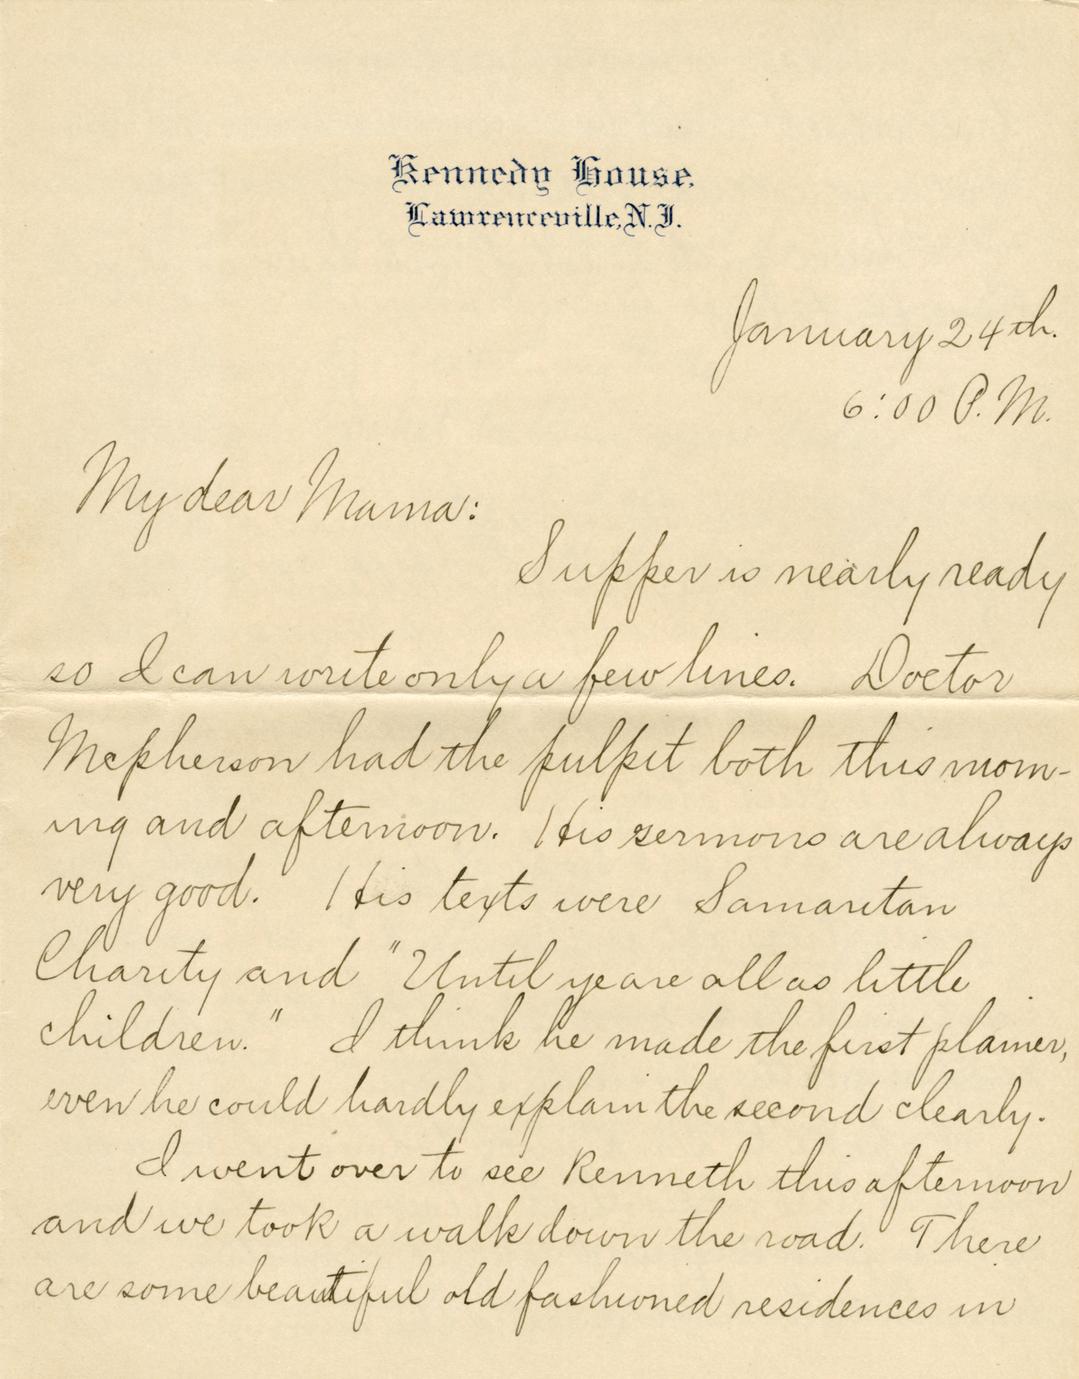 Kennedy House,
Lawrenceville, N.J.
January 24th.
6:00 P.M.
My dear Mama:
Supper is nearly ready
so I can write only a few lines. Doctor
Mcpherson had the pulpit both this morn-
ing and afternoon. His sermons are always
very good. His texts were Samaritan
Charity and "Until ye are all as little
children." I think he made the first plainer,
even he could hardly explain the second clearly.
I went over to see Kenneth this afternoon
and we took a walk down the road. There
are some beautiful old fashioned residences in